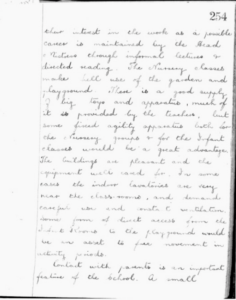 254
their interest in the work as a possible
career is maintained by the Head
through informal lectures &
directed reading. The Nursery classes
make full use of the garden and
playground. There is a good supply
of big toys and apparatus, much of
it is provided by the teachers, but
some fixed agility apparatus both for
the Nursery groups & for the Infant
classes would be a great advantage.
The buildings are pleasant and the
equipment well cared for. In some
cases the indoor lavatories are very
near the classrooms, and demand
careful use and ventilation
some form of direct access from the
Infant Rooms to the playground would
be an asset to free movement in
activity periods.
Contact with parents is an important
feature of the School. A small